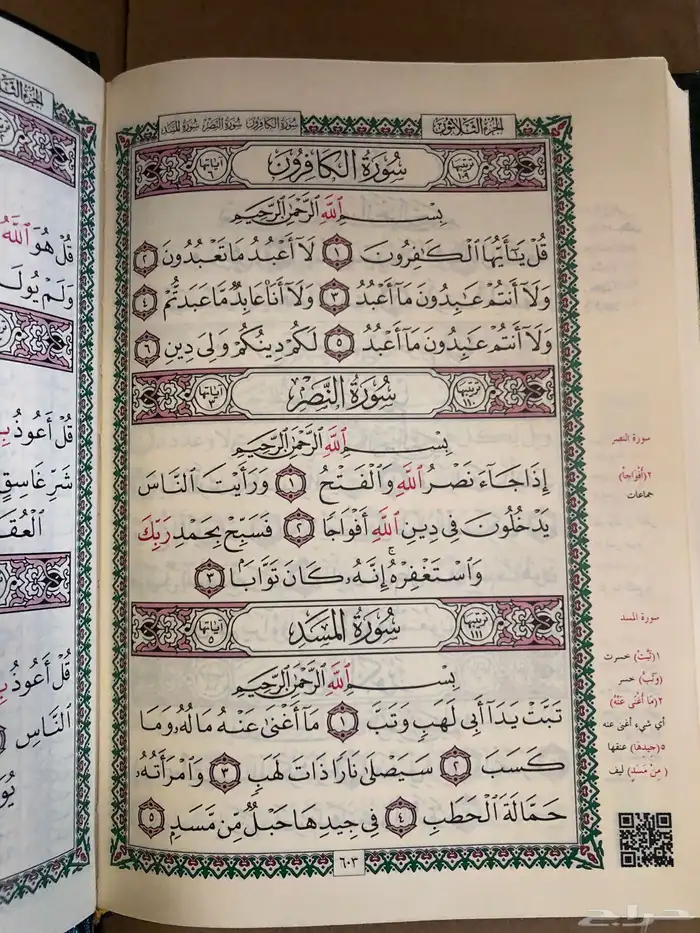 الجزء الثلاثون
سورة الكافرون سورة النصر سورة المسد
ترتيبها ١٠٩ سُورَةُ الكَافِرُونَ آياتها ٦
بِسْمِ ٱللَّهِ ٱلرَّحْمَٰنِ ٱلرَّحِيمِ
قُلْ يَٰٓأَيُّهَا ٱلْكَٰفِرُونَ ١ لَآ أَعْبُدُ مَا تَعْبُدُونَ ٢
وَلَآ أَنتُمْ عَٰبِدُونَ مَآ أَعْبُدُ ٣ وَلَآ أَنَا۠ عَابِدٌ مَّا عَبَدتُّمْ ٤
وَلَآ أَنتُمْ عَٰبِدُونَ مَآ أَعْبُدُ ٥ لَكُمْ دِينُكُمْ وَلِىَ دِينِ ٦
ترتيبها ١١٠ سُورَةُ النَّصْرِ آياتها ٣
بِسْمِ ٱللَّهِ ٱلرَّحْمَٰنِ ٱلرَّحِيمِ
إِذَا جَآءَ نَصْرُ ٱللَّهِ وَٱلْفَتْحُ ١ وَرَأَيْتَ ٱلنَّاسَ
يَدْخُلُونَ فِى دِينِ ٱللَّهِ أَفْوَاجًا ٢ فَسَبِّحْ بِحَمْدِ رَبِّكَ
وَٱسْتَغْفِرْهُ ۚ إِنَّهُۥ كَانَ تَوَّابًۢا ٣
ترتيبها ١١١ سُورَةُ المَسَدِ آياتها ٥
بِسْمِ ٱللَّهِ ٱلرَّحْمَٰنِ ٱلرَّحِيمِ
تَبَّتْ يَدَآ أَبِى لَهَبٍ وَتَبَّ ١ مَآ أَغْنَىٰ عَنْهُ مَالُهُۥ وَمَا
كَسَبَ ٢ سَيَصْلَىٰ نَارًا ذَاتَ لَهَبٍ ٣ وَٱمْرَأَتُهُۥ
حَمَّالَةَ ٱلْحَطَبِ ٤ فِى جِيدِهَا حَبْلٌ مِّن مَّسَدٍۭ ٥
٦٠٣
سورة النصر
٢(أَفْوَاجاً)
جماعات
سورة المسد
١(تَبَّتْ) خسرت
(وَتَبَّ) خسر
٢(مَا أَغْنَى عَنْهُ)
أي شيء أغنى عنه
٥(جِيدِهَا) عنقها
(مِنْ مَسَدٍ) ليف
قُلْ هُوَ ٱللَّهُ
وَلَمْ يُولَ
قُلْ أَعُوذُ بِ
شَرِّ غَاسِقٍ
ٱلْعُقَ
قُلْ أَعُوذُ بِ
ٱلنَّاسِ
يُو
حراج